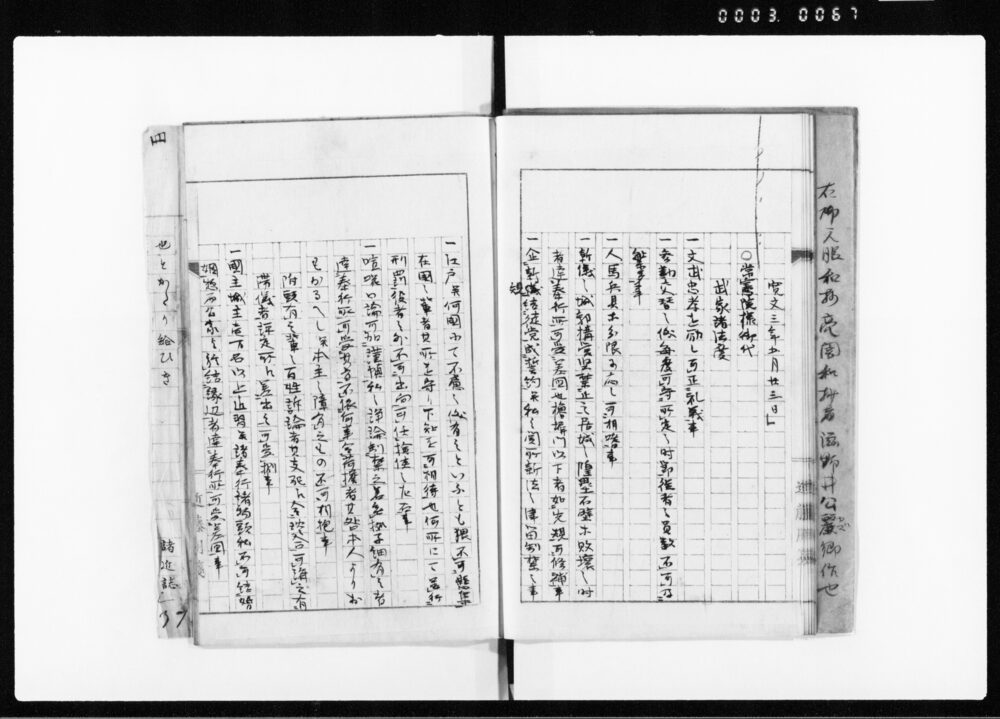 0003. 0067
寛文三年五月廿三日」
〇常憲院様御代
武家諸法度
一文武忠孝を励し可正礼義事
一参勤交替之儀毎歳可守所定之時節従者之員数不可及
繁多事
一人馬兵具等分限に応し可相嗜事
一新儀之城郭構営堅禁止之居城之隍塁石壁等敗壊之時
者達奉行所可受差図也櫓塀門以下者如先規可修補事
一企新規結徒党成誓約并私之関所新法之津留制禁之事
一江戸并何国にて不慮之儀有之といふとも猥不可懸集
在国之輩者其所を守り下知を可相待也何所にて雖行
刑罰役者之外不可出向可任検使之左右事
一喧嘩口論可加謹慎私之諍論制禁之若無拠子細有之者
達奉行所可受其旨不依何事令荷担者其咎本人より重
かるへし并本主之障有之もの不可相抱事
附頭有之輩之百姓訴論者其支配へ令談合可済之有
滞儀者評定所へ差出之可受捌事
一国主城主壱万石以上近習并諸奉行諸物頭私不可結婚
姻惣而公家と於結縁辺者達奉行所可受差図事
四
也とわたり給ひき
諸進誌
37